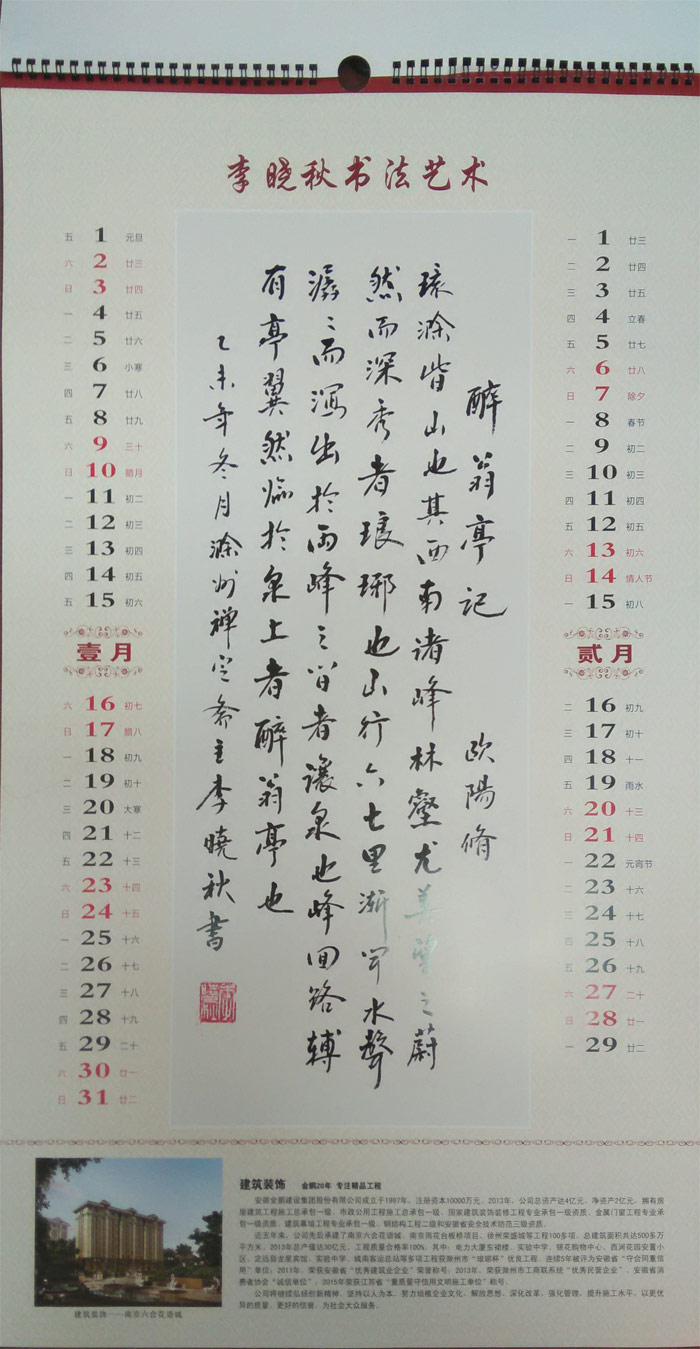 李晓秋书法艺术
五 1 元旦
六 2 廿三
日 3 廿四
一 4 廿五
二 5 廿六
三 6 小寒
四 7 廿八
五 8 廿九
六 9 三十
日 10 腊月
一 11 初二
二 12 初三
三 13 初四
四 14 初五
五 15 初六
壹月
六 16 初七
日 17 腊八
一 18 初九
二 19 初十
三 20 大寒
四 21 十二
五 22 十三
六 23 十四
日 24 十五
一 25 十六
二 26 十七
三 27 十八
四 28 十九
五 29 二十
六 30 廿一
日 31 廿二
醉翁亭记 欧陽脩
环滁皆山也其西南诸峰林壑尤美望之蔚
然而深秀者琅琊也山行六七里渐闻水聲
潺〻而泻出於两峰之间者讓泉也峰回路转
有亭翼然临於泉上者醉翁亭也
乙未年冬月滁州禅定斋主李晓秋書
一 1 廿三
二 2 廿四
三 3 廿五
四 4 立春
五 5 廿七
六 6 廿八
日 7 除夕
一 8 春节
二 9 初二
三 10 初三
四 11 初四
五 12 初五
六 13 初六
日 14 情人节
一 15 初八
贰月
二 16 初九
三 17 初十
四 18 十一
五 19 雨水
六 20 十三
日 21 十四
一 22 元宵节
二 23 十六
三 24 十七
四 25 十八
五 26 十九
六 27 二十
日 28 廿一
一 29 廿二
建筑装饰——南京六合花语城
建筑装饰 金鹏20年 专注精品工程
安徽金鹏建设集团股份有限公司成立于1997年，注册资本10000万元，2013年，公司总资产达4亿元，净资产2亿元，拥有房
屋建筑工程施工总承包一级、市政公用工程施工总承包一级、国家建筑装饰装修工程专业承包一级资质、金属门窗工程专业承
包一级资质、建筑幕墙工程专业承包一级、钢结构工程二级和安徽省安全技术防范三级资质。
近五年来，公司先后承建了南京六合花语城、南京雨花台板桥项目、徐州荣盛城等工程100多项，总建筑面积共达500多万
平方米，2013年总产值达30亿元，工程质量合格率100%，其中：电力大厦东裙楼、实验中学、银花购物中心、西涧花园安置小
区、定远县金星宾馆、实验中学、城南客运总站等多项工程获滁州市“琅琊杯”优良工程，连续5年被评为安徽省“守合同重信
用”单位，2011年，荣获安徽省“优秀建筑业企业”荣誉称号，2013年，荣获滁州市工商联系统“优秀民营企业”、安徽省消
费者协会“诚信单位”，2015年荣获江苏省“重质量守信用文明施工单位”称号。
公司将继续弘扬创新精神，坚持以人为本，努力培植企业文化，解放思想，深化改革，强化管理，提升施工水平，以更优
异的质量，更好的信誉，为社会大众服务。